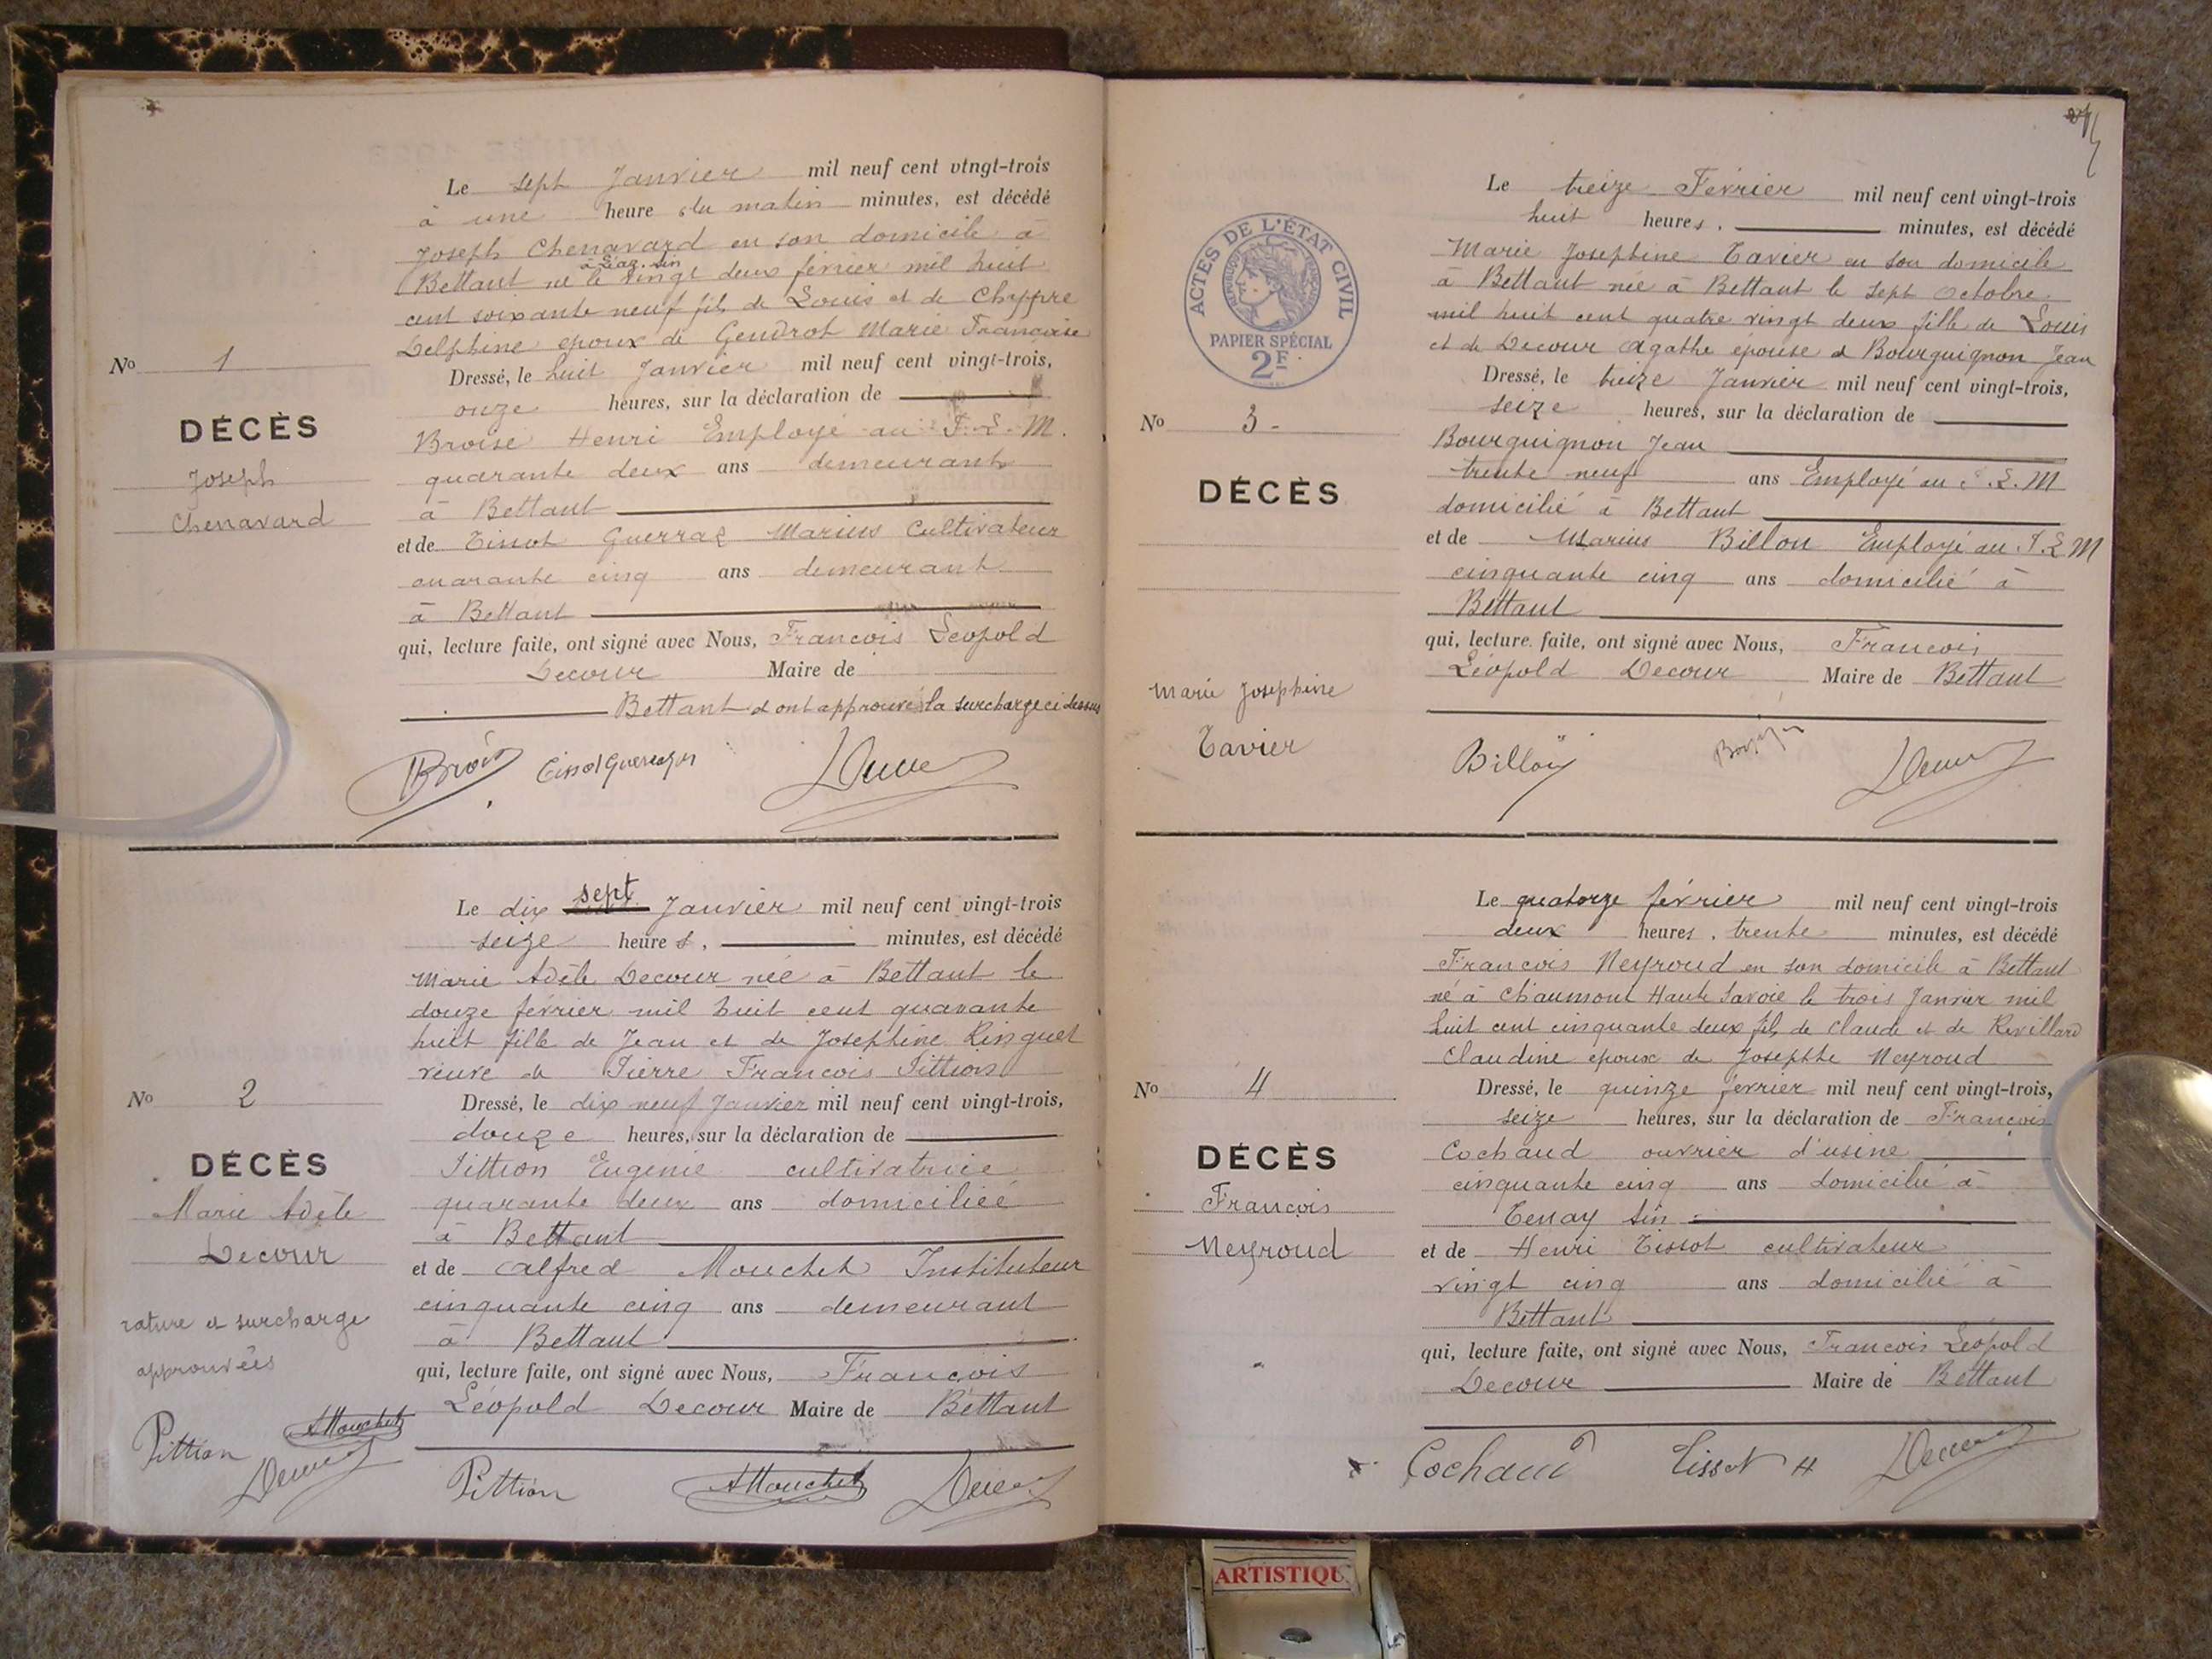 Le sept Janvier mil neuf cent vingt-trois
à une heure du matin minutes, est décédé
Joseph Chenavard en son domicile à
à Liaz. Ain
Bettant né le vingt deux février mil huit
cent soixante neuf fils de Louis et de Chyppre
Delphine époux de Gendrot Marie Françoise
No 1
Dressé, le huit Janvier mil neuf cent vingt-trois,
onze heures, sur la déclaration de
DÉCÈS
Joseph
Chenavard
Broise Henri Employé au P. L. M.
quarante deux ans demeurant
à Bettant
et de Tissot Guerraz Marius Cultivateur
quarante cinq ans demeurant
à Bettant
qui, lecture faite, ont signé avec Nous, François Leopold
Decour Maire de
Bettant et ont approuvé la surcharge ci dessus
Le dix sept Janvier mil neuf cent vingt-trois
seize heures, minutes, est décédé
Marie Adèle Decour née à Bettant le
douze février mil huit cent quarante
huit fille de Jean et de Josephine Ringuet
veuve de Pierre François Pittion
No 2
Dressé, le dix neuf Janvier mil neuf cent vingt-trois,
douze heures, sur la déclaration de
DÉCÈS
Marie Adèle
Decour
Pittion Eugenie cultivatrice
quarante deux ans domiciliée
à Bettant
et de Alfred Mouchet Instituteur
cinquante cinq ans demeurant
à Bettant
rature et surcharge
approuvées
qui, lecture faite, ont signé avec Nous, François
Léopold Decour Maire de Bettant
Pittion AMouchet
Decour
Pittion AMouchet Decour
Le treize Février mil neuf cent vingt-trois
huit heures, minutes, est décédé
Marie Josephine Tavier en son domicile
à Bettant née à Bettant le sept Octobre
mil huit cent quatre vingt deux fille de Louis
et de Decour Agathe épouse d Bourguignon Jean
ACTES DE L'ÉTAT CIVIL
RÉPUBLIQUE FRANÇAISE
PAPIER SPÉCIAL
2F.
Dressé, le treize Janvier mil neuf cent vingt-trois,
seize heures, sur la déclaration de
No 3
DÉCÈS
Marie Josephine
Tavier
Bourguignon Jean
trente neuf ans Employé au P. L. M
domicilié à Bettant
et de Marius Billon Employé au P. L M
cinquante cinq ans domicilié à
Bettant
qui, lecture faite, ont signé avec Nous, François
Léopold Decour Maire de Bettant
Billon Decour
Le quatorze février mil neuf cent vingt-trois
deux heures, trente minutes, est décédé
François Neyroud en son domicile à Bettant
né à Chaumont Haute Savoie le trois Janvier mil
huit cent cinquante deux fils de Claude et de Revillard
Claudine epoux de Josepthe Neyroud
No 4
Dressé, le quinze fevrier mil neuf cent vingt-trois,
seize heures, sur la déclaration de François
DÉCÈS
François
Neyroud
Cochaud ouvrier d'usine
cinquante cinq ans domicilié à
Tenay Ain
et de Henri Tissot cultivateur
vingt cinq ans domicilié à
Bettant
qui, lecture faite, ont signé avec Nous, François Léopold
Decour Maire de Bettant
Cochaud Tissot H Decour
ARTISTIQU